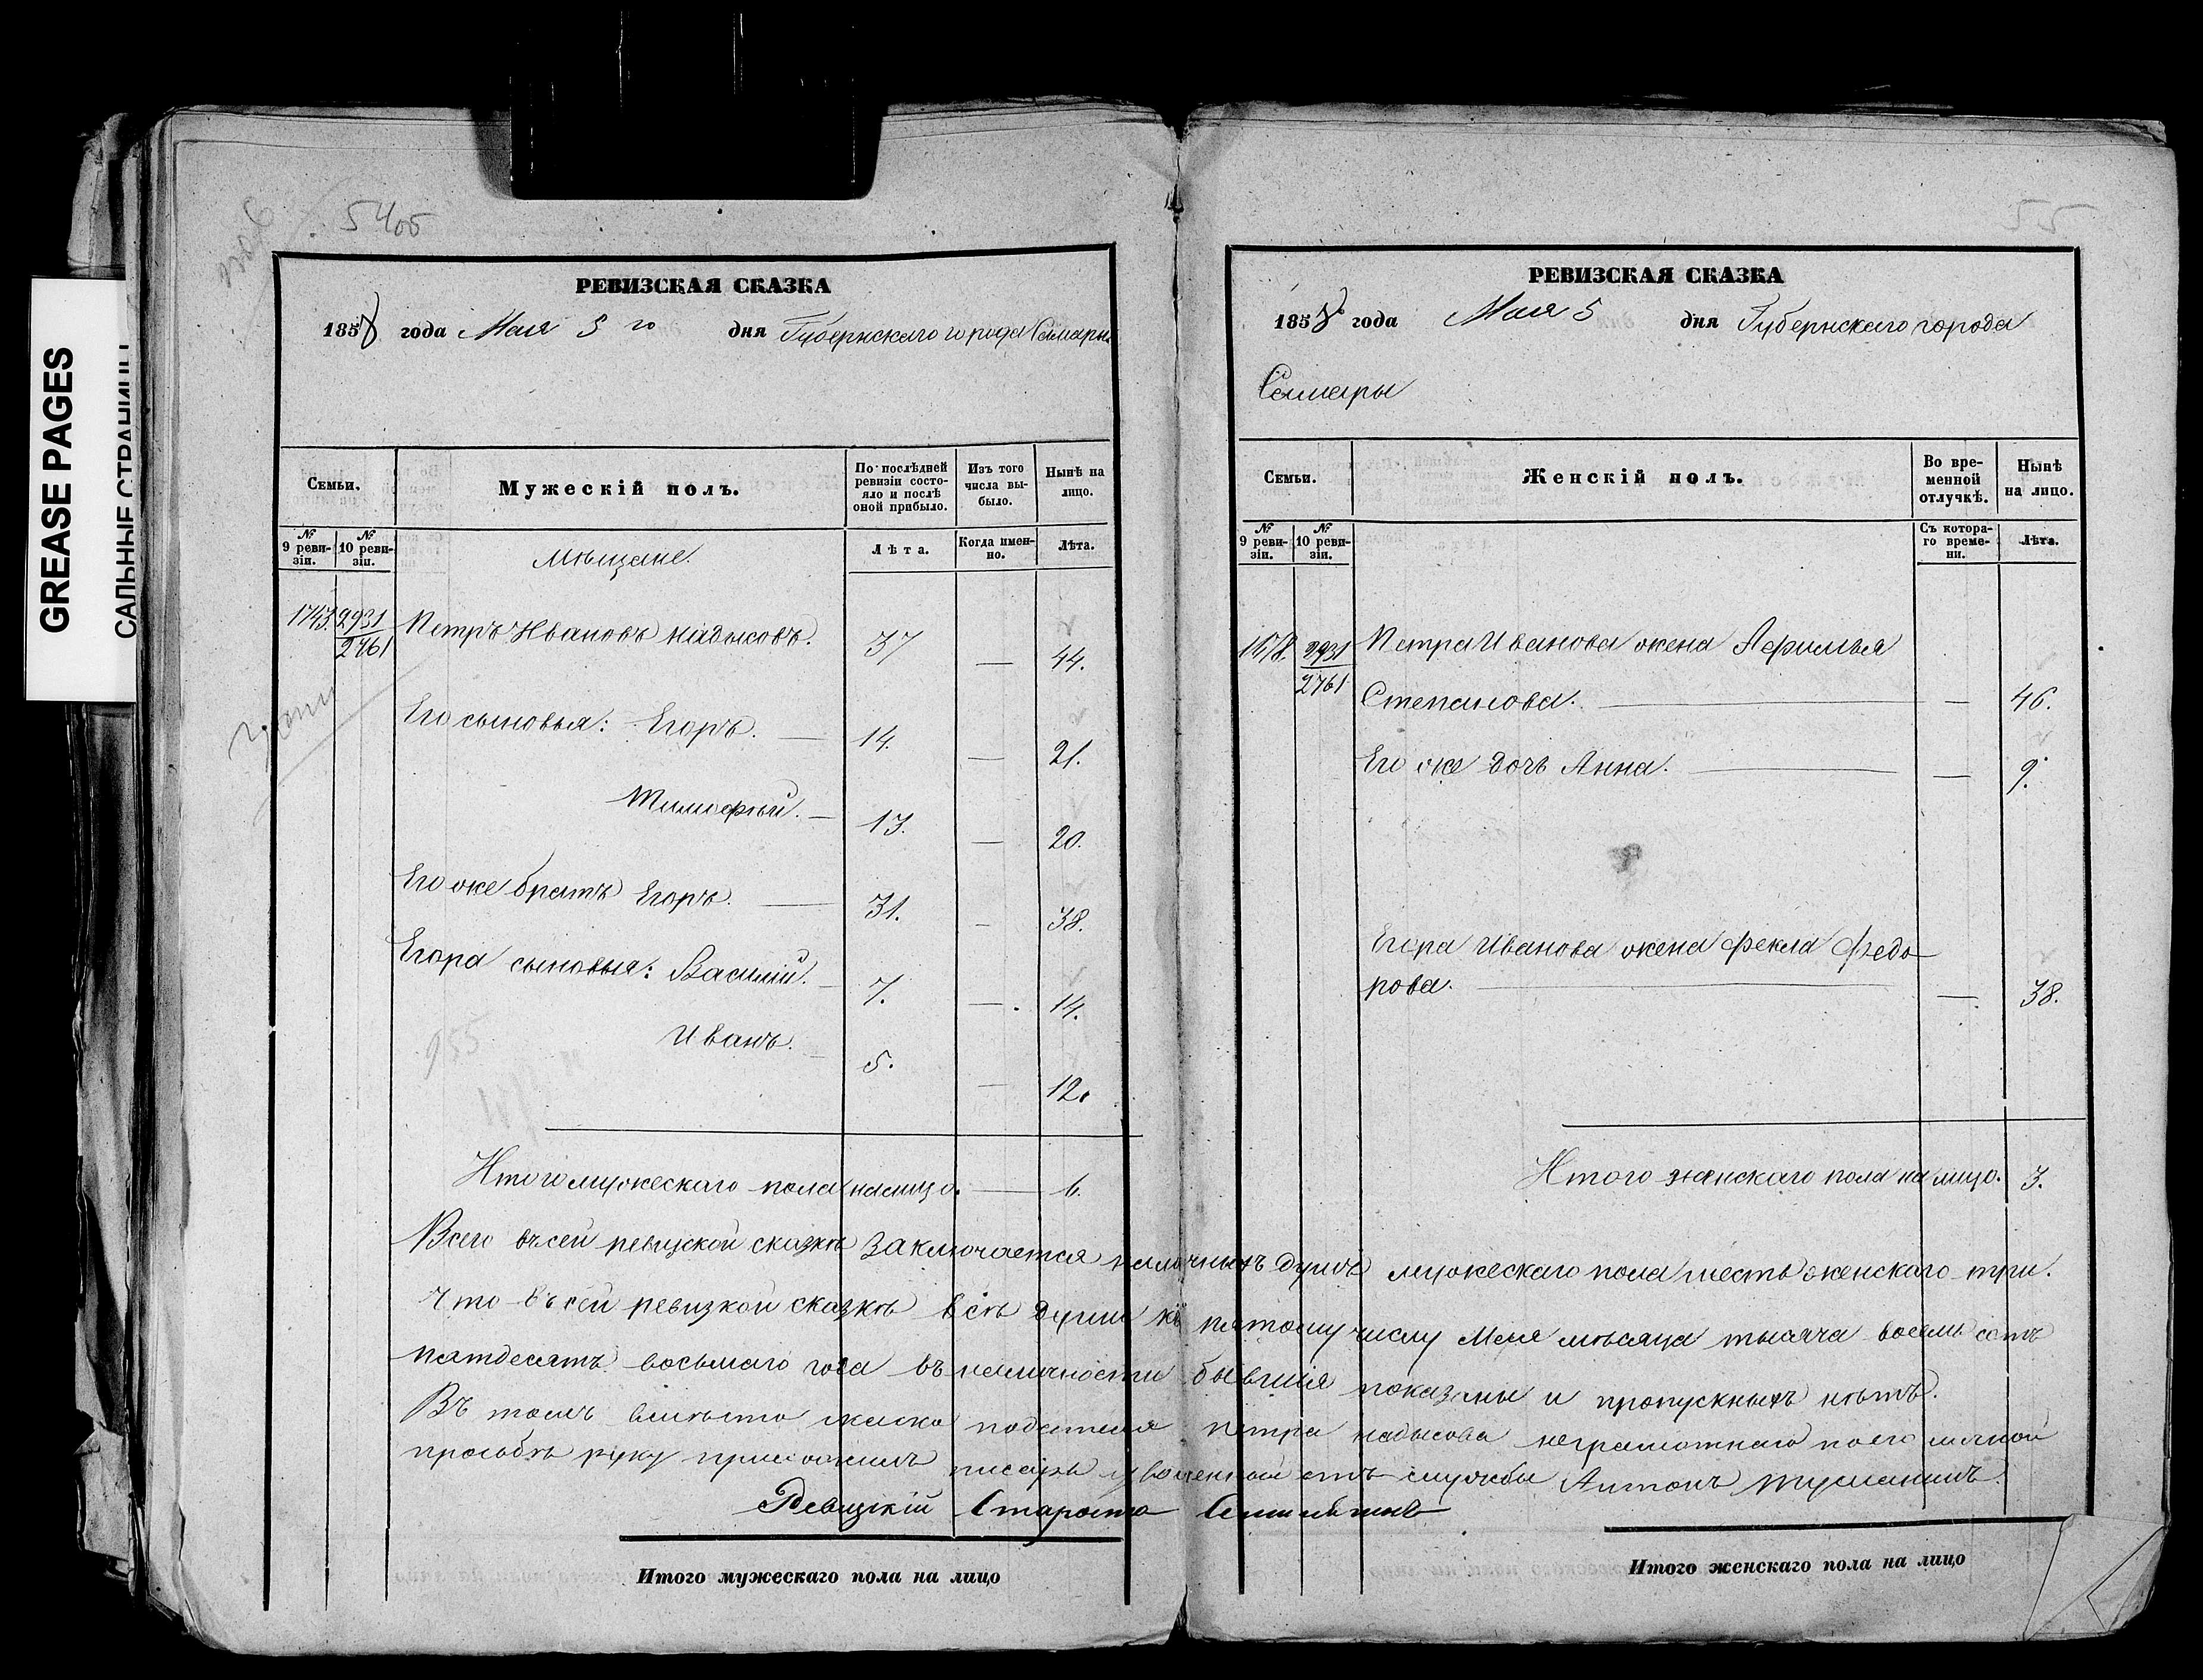 GREASE PAGES
САЛЬНЫЕ СТРАНИЦЫ
РЕВИЗСКАЯ СКАЗКА
1858 года Мая 5 го дня Губернскаго города Самары
Семьи.
Мужескій полъ.
По послѣдней ревизіи состояло и послѣ оной прибыло.
Изъ того числа выбыло.
Нынѣ на лицо.
№ 9 ревизіи.
№ 10 ревизіи.
Мѣщане.
Лѣта.
Когда именно.
Лѣта.
1743. 2931 Петръ Ивановъ Надысовъ. 37 — 44.
2761
Его сыновья: Егоръ. — 14. — 21.
Тимофѣй. — 13. — 20.
Его же братъ Егоръ. — 31. — 38.
Егора сыновья: Василій. — 7. — 14.
955
Иванъ. — 5. — 12.
Итого мужескаго пола на лицо. — 6.
55
РЕВИЗСКАЯ СКАЗКА
1858 года Мая 5 дня Губернскаго города
Самары
Семьи.
Женскій полъ.
Во временной отлучкѣ.
Нынѣ на лицо.
№ 9 ревизіи.
№ 10 ревизіи.
Съ котораго времени.
Лѣта.
2931 Петра Иванова жена Афимья
2761 Степанова. — — 46.
Его же дочь Анна. — — 9.
Егора Иванова жена Фекла Федо
рова. — — 38.
Итого женскаго пола на лицо. 3.
Всего въ сей ревизской сказкѣ заключается наличныхъ душъ мужескаго пола шесть женскаго три.
Что въ сей ревизкой сказкѣ всѣ души къ пятому числу Мая мѣсяца тысяча восемь сотъ
пятдесятъ восьмаго года въ наличности бывшія показаны и пропускныхъ нѣтъ.
Въ томъ вмѣсто подателя Петра Надысова неграмотнаго по его личной
прозьбѣ руку приложилъ писарь уволенный отъ службы Антонъ Тушанинъ.
Ревизкій Староста
Итого мужескаго пола на лицо
Итого женскаго пола на лицо